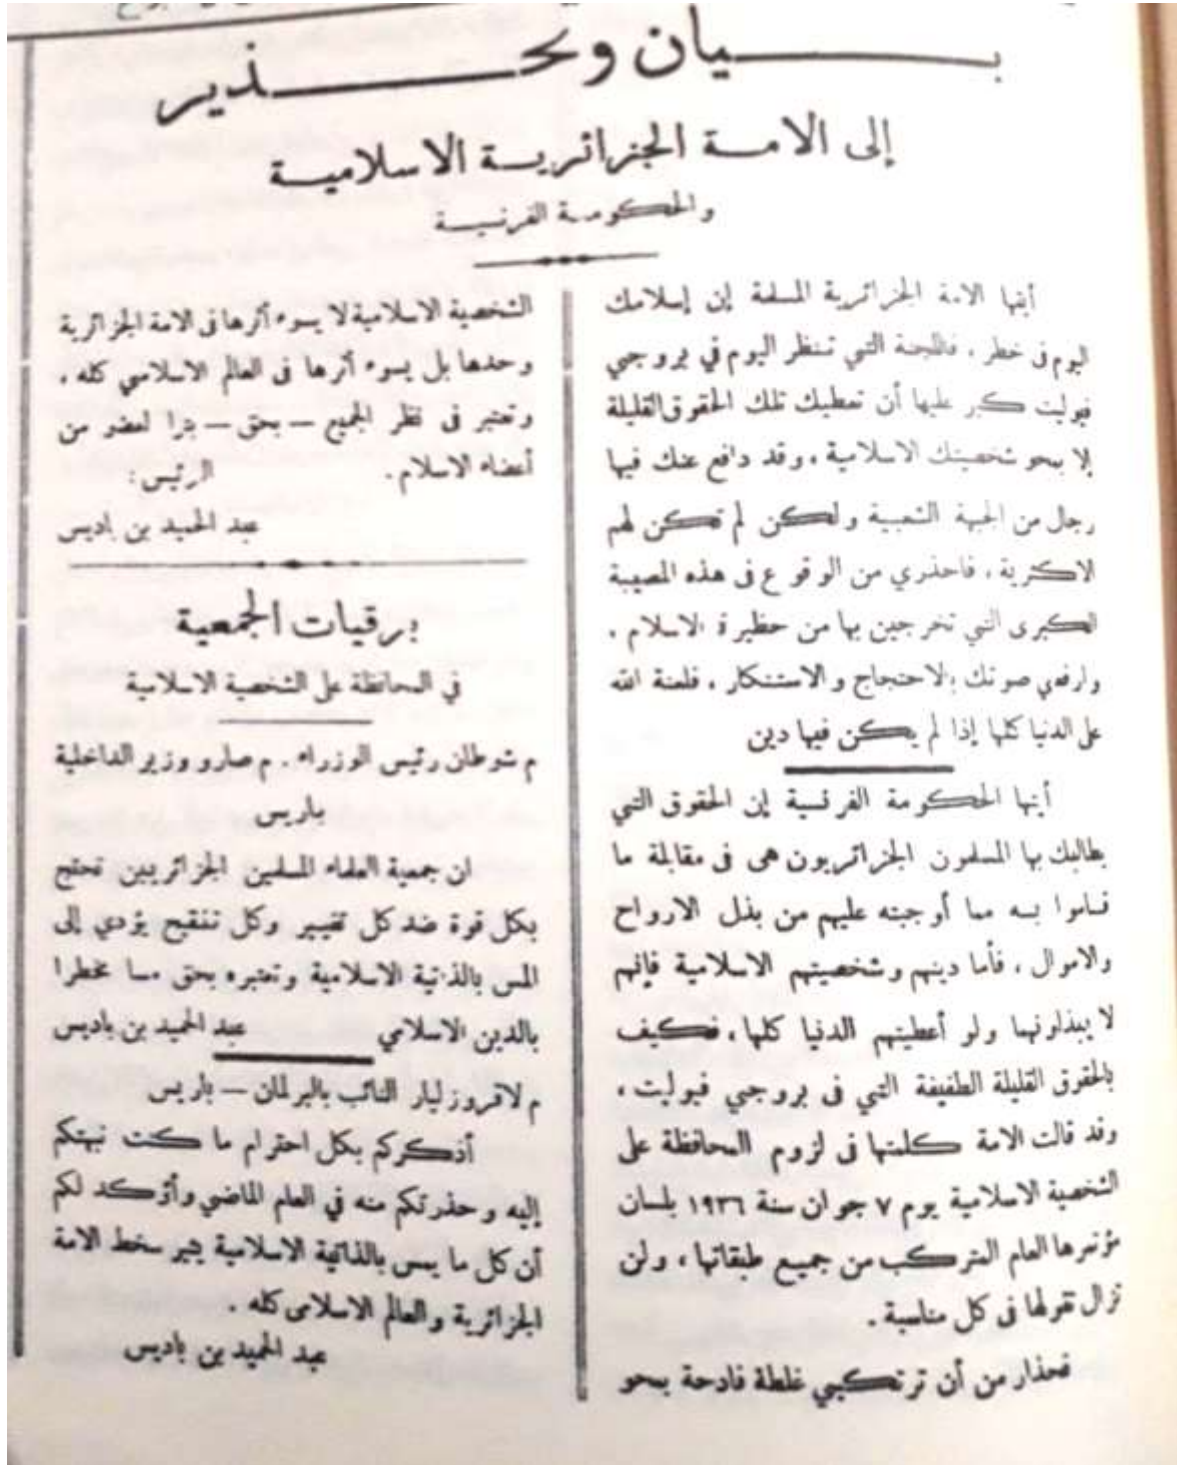 بيان وتحذير
إلى الامة الجزائرية الاسلامية
والحكومة الفرنسية
أيتها الامة الجزائرية المسلمة إن إسلامك
اليوم فى خطر ، فاللجنة التي تنظر اليوم في بروجي
فيوليت كبر عليها أن تعطيك تلك الحقوق القليلة
إلا بمحو شخصيتك الاسلامية ، وقد دافع عنك فيها
رجال من الجبهة الشعبية ولكن لم تكن لهم
الاكثرية ، فاحذري من الوقوع فى هذه المصيبة
الكبرى التي تخرجين بها من حظيرة الاسلام .
وارفعي صوتك بالاحتجاج والاستنكار ، فلعنة الله
على الدنيا كلها إذا لم يكن فيها دين
أيتها الحكومة الفرنسية إن الحقوق التي
يطالبك بها المسلمون الجزائريون هى فى مقابلة ما
قاموا به مما أوجبته عليهم من بذل الارواح
والاموال ، فأما دينهم وشخصيتهم الاسلامية فإنهم
لا يبذلونهما ولو أعطيتهم الدنيا كلها ، فكيف
بالحقوق القليلة الطفيفة التي فى بروجي فيوليت ،
وقد قالت الامة كلمتها فى لزوم المحافظة على
الشخصية الاسلامية يوم ٧ جوان سنة ١٩٣٦ بلسان
مؤتمرها العام المتركب من جميع طبقاتها ، ولن
تزال تقولها فى كل مناسبة .
فحذار من أن ترتكبي غلطة فادحة بمحو
الشخصية الاسلامية لا يسوء أثرها فى الامة الجزائرية
وحدها بل يسوء أثرها فى العالم الاسلامي كله ،
وتعتبر فى نظر الجميع — بحق — بترا لعضو من
أعضاء الاسلام . الرئيس :
عبد الحميد بن باديس
برقيات الجمعية
في المحافظة على الشخصية الاسلامية
م شوطان رئيس الوزراء . م صارو وزير الداخلية
باريس
ان جمعية العلماء المسلمين الجزائريين تحتج
بكل قوة ضد كل تغيير وكل تنقيح يؤدي إلى
المس بالذاتية الاسلامية وتعتبره بحق مسا مخطرا
بالدين الاسلامي عبد الحميد بن باديس
م لاقروزليار النائب بالبرلمان — باريس
أذكركم بكل احترام ما كنت نبهتكم
إليه وحذرتكم منه في العام الماضي وأؤكد لكم
أن كل ما يمس بالذاتية الاسلامية يثير سخط الامة
الجزائرية والعالم الاسلامى كله .
عبد الحميد بن باديس